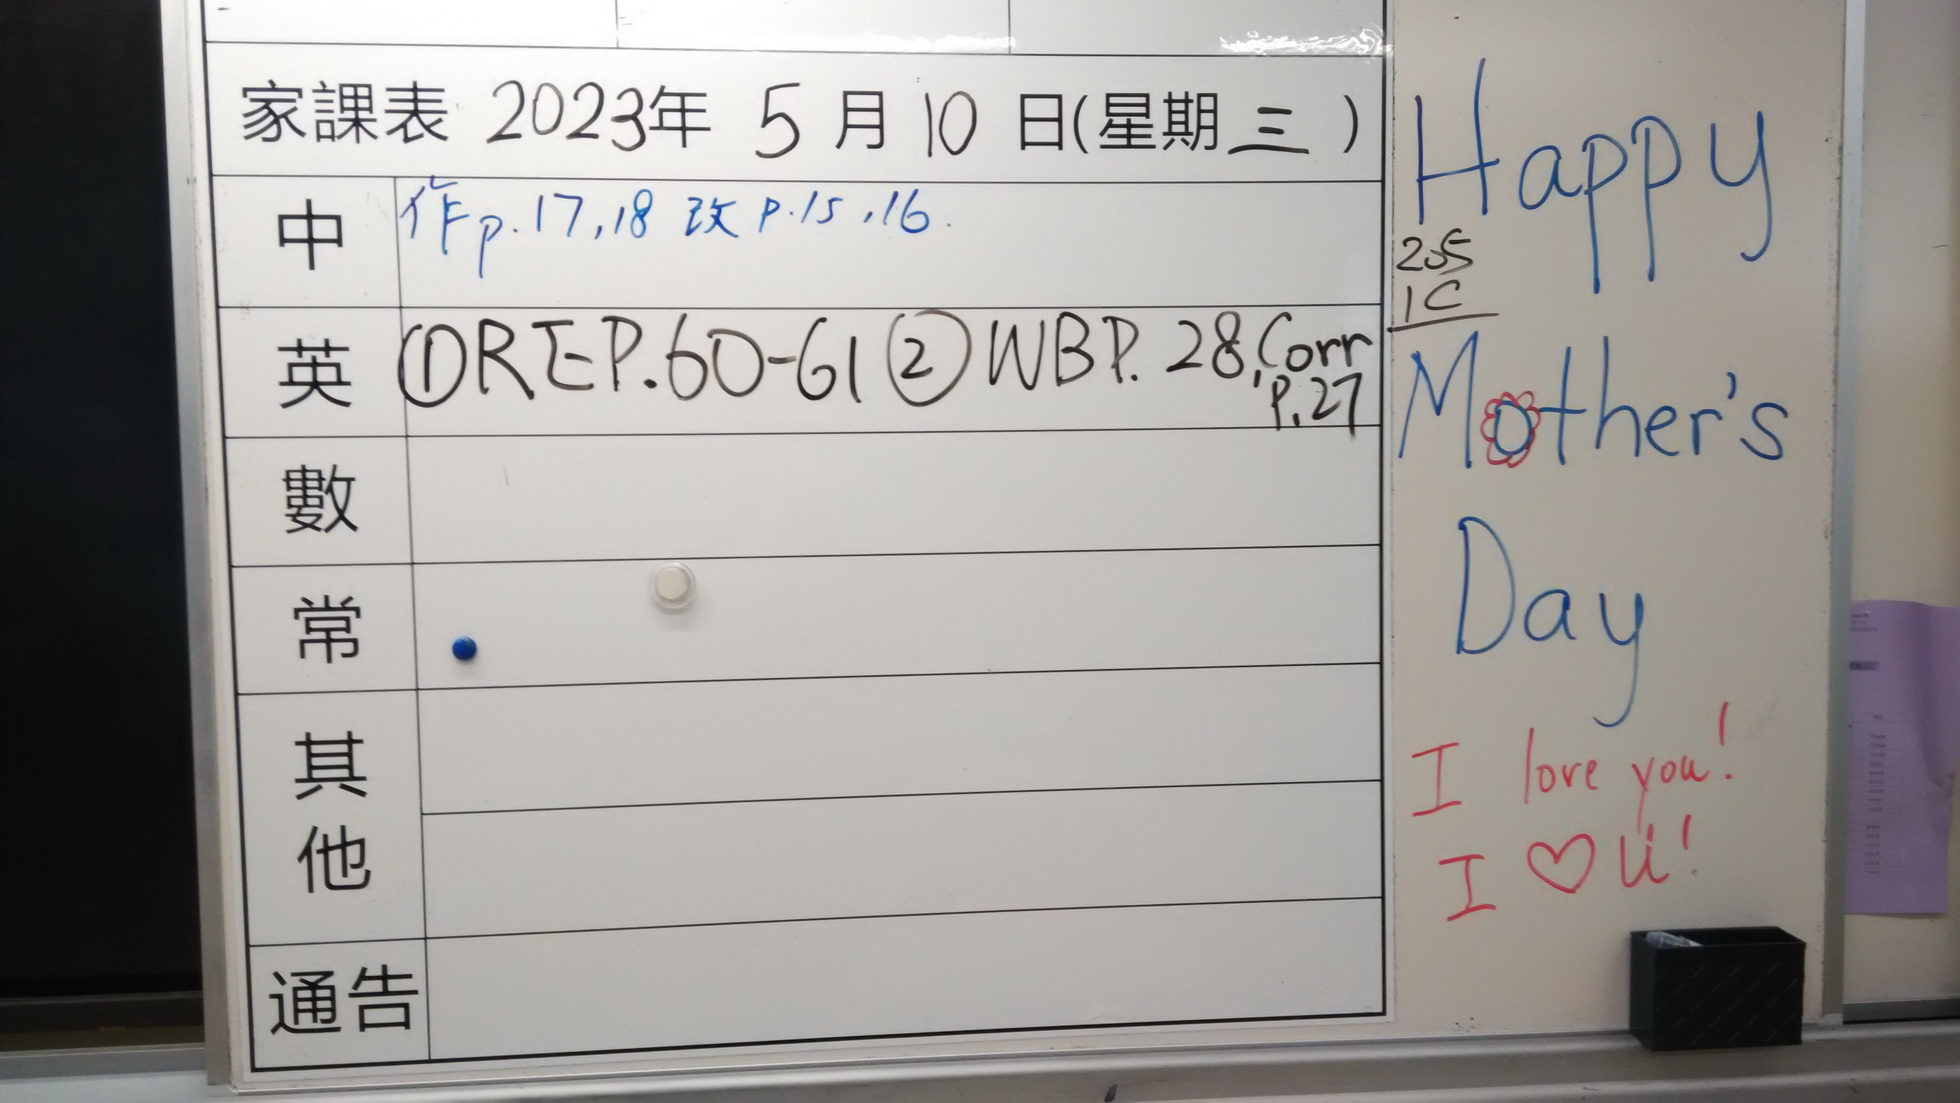 家課表 2023年 5月10日(星期三)
中 作p.17,18 改p.15,16.
英 ①REP.60-61 ②WBP.28,Corr
P.27
數
常
其他
通告
Happy
1C
Mother's
Day
I love you!
I ♡ U!